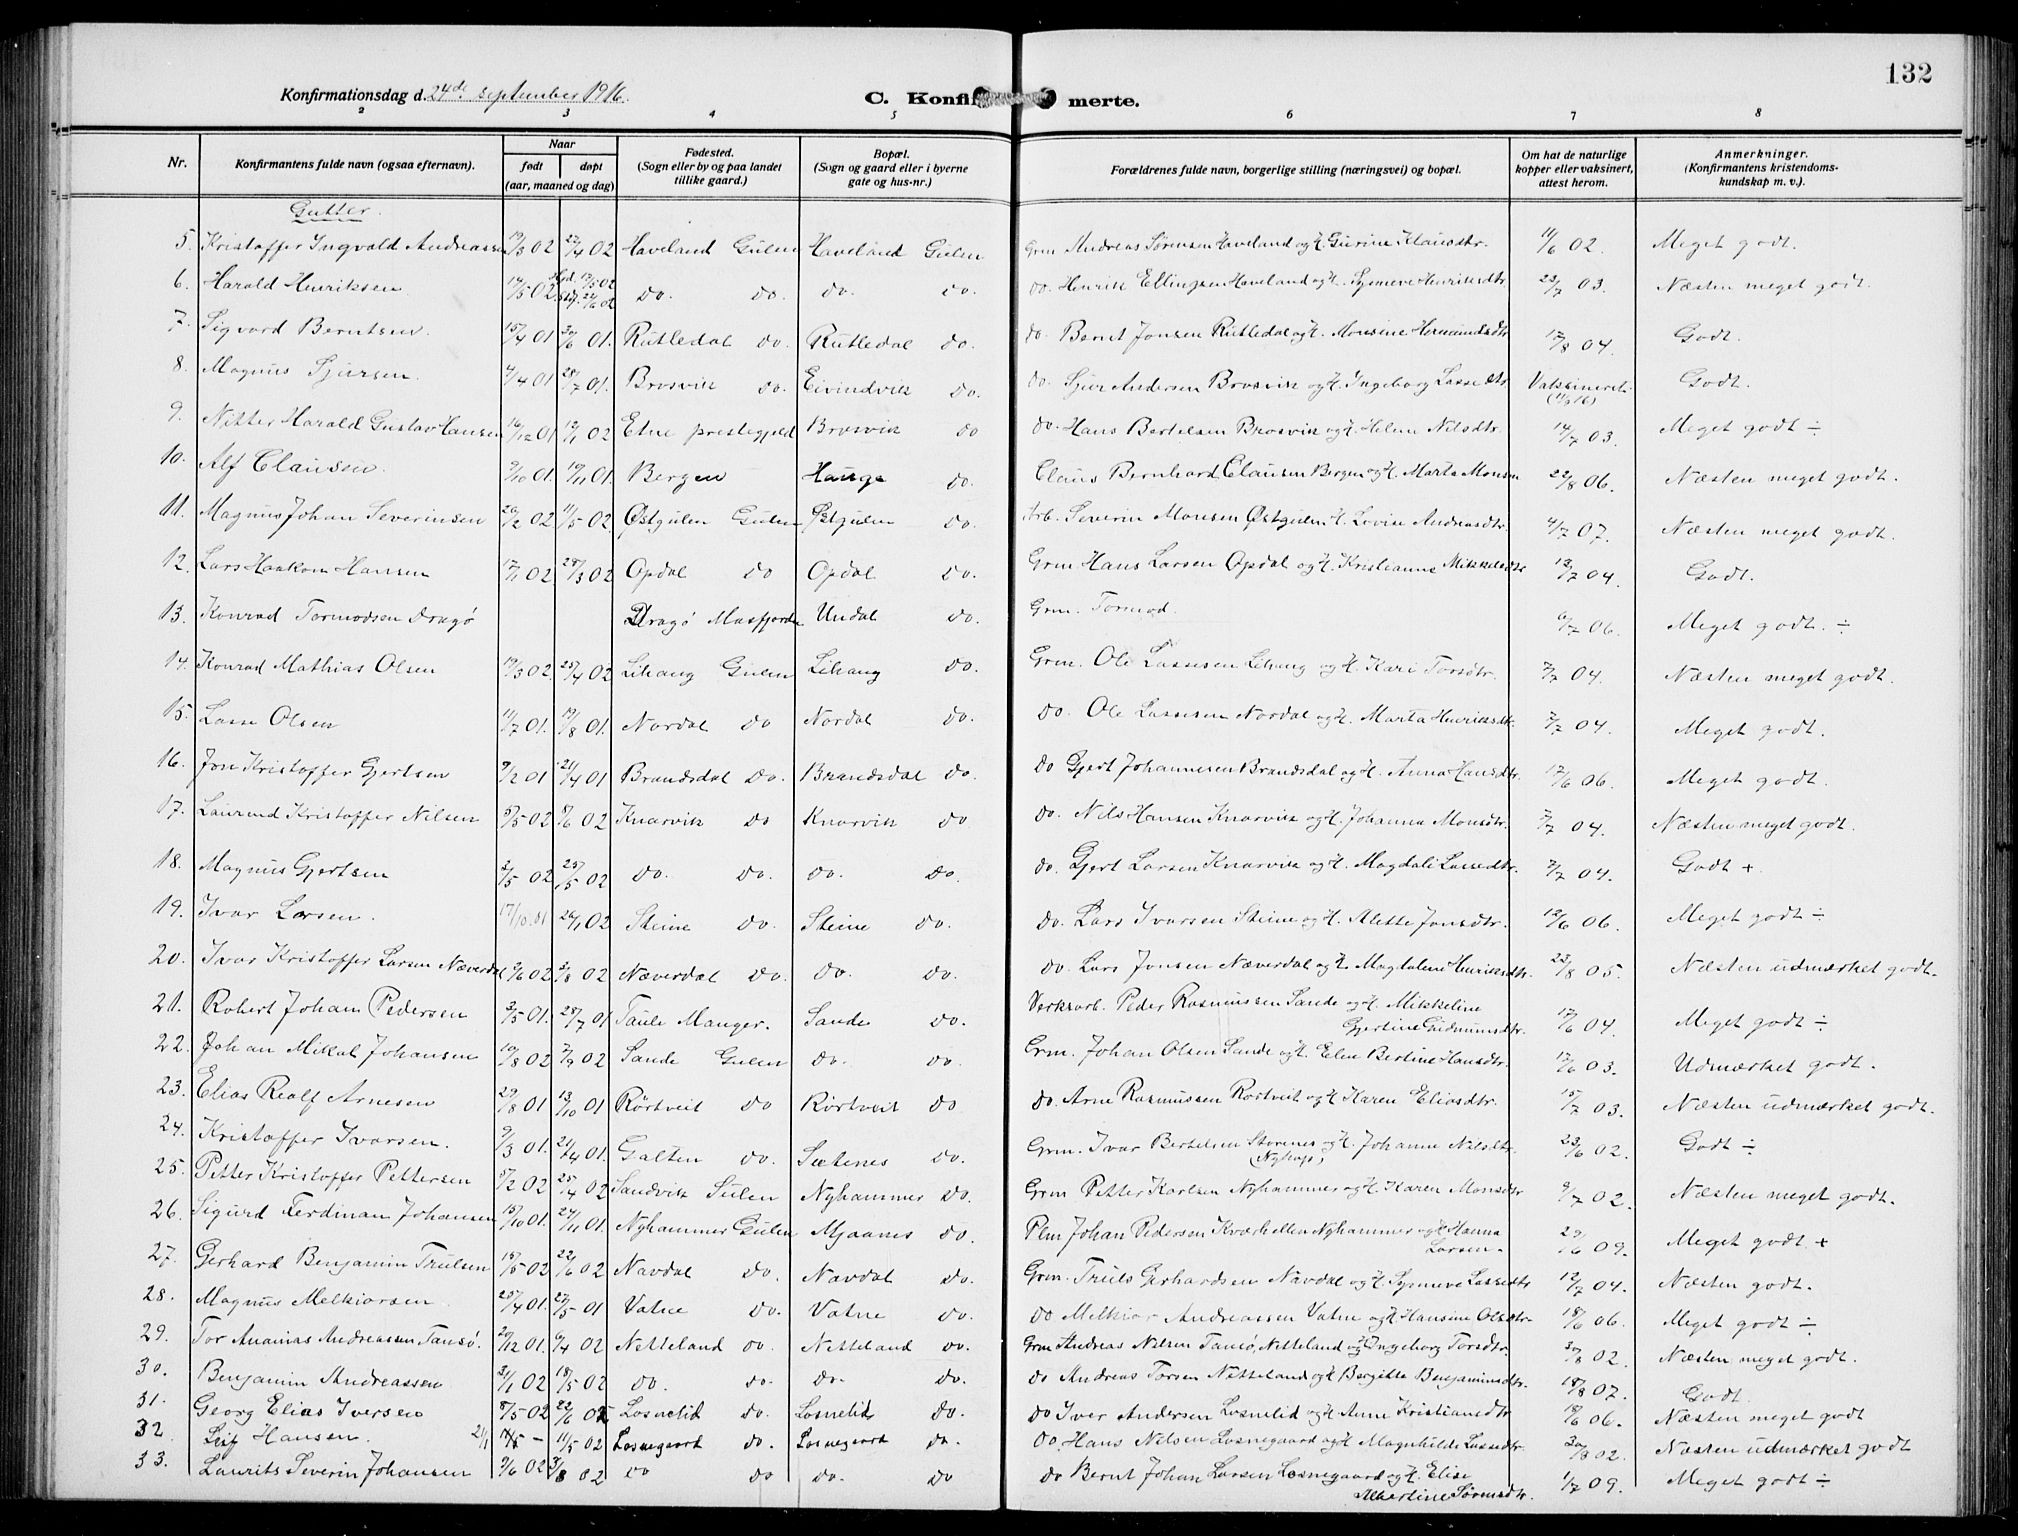 132
Konfirmationsdag d. 24de september 1916.
C. Konfirmerte.
2 3 4 5 6 7 8
Nr. Konfirmantens fulde navn (ogsaa efternavn). Naar født døpt (aar, maaned og dag) Fødested. (Sogn eller by og paa landet tillike gaard.) Bopæl. (Sogn og gaard eller i byerne gate og hus-nr.) Forældrenes fulde navn, borgerlige stilling (næringsvei) og bopæl. Om hat de naturlige kopper eller vaksinert, attest herom. Anmerkninger. (Konfirmantens kristendoms-kundskap m. v.).
Gutter.
5. Kristoffer Ingvald Andreassen 19/3 02 27/4 02 Haveland Gulen Haveland Gulen Grm Andreas Sørensen Haveland og H. Gurine Klausdtr. 11/6 02. Meget godt.
6. Harald Henriksen 14/5 02 do. do. do. do. do. Henrik Ellingsen Haveland og H. Synneve Henriksdtr 23/7 03. Næsten meget godt.
7. Sigvard Berntsen. 15/4 01 30/6 01. Rutledal do. Rutledal do. do. Bernt Jonsen Rutledal og H. Monsine Hermundsdtr 17/8 04. Godt.
8. Magnus Sjursen. 4/4 01 28/7 01. Brosvik do. Eivindvik do. do. Sjur Andersen Brosvik og H. Ingeborg Lassedtr Vaksineret (11/9 16) Godt.
9. Nitter Harald Gustav Hansen 16/12 01 12/1 02 Etne prestegjeld Brosvik do do. Hans Bertelsen Brosvik og H. Helene Nilsdtr. 14/7 03. Meget godt ÷
10. Alf Clausen. 9/10 01. 19/11 01. Bergen Hauge do. Claus Bernhard Clausen Bergen og H. Marta Monsen 22/8 06. Næsten meget godt.
11. Magnus Johan Severinsen 20/2 02 11/5 02 Østgulen Gulen Østgulen do. Arb. Severin Monsen Østgulen H. Lovise Andreasdtr. 4/7 07. Næsten meget godt.
12. Lars Haakon Hansen 17/1 02 28/3 02 Opdal do Opdal do. Grm Hans Larsen Opdal og H. Kristianne Mikkelsdtr 12/7 04. Godt.
13. Konrad Tormodsen Dragø Dragø Masfjorden Undal do. Grm. Tormod. 6/7 06. Meget godt. ÷
14. Konrad Mathias Olsen 19/3 02. 25/4 02 Lihaug Gulen Lihaug do. Grm. Ole Lassesen Lihaug og H. Kari Torsdtr. 7/7 04. Næsten meget godt.
15. Lasse Olsen 11/7 01. 19/8 01. Nordal do Nordal do. do. Ole Lassesen Nordal og H. Marta Henriksdtr. 7/7 04. Meget godt.
16. Jon Kristoffer Gjertsen 9/2 01 21/4 01 Brandsdal do. Brandsdal do. do Gjert Johannesen Brandsdal og H. Anna Hansdtr. 17/6 06. Meget godt.
17. Laurend Kristoffer Nilsen 5/5 02 8/6 02 Knarvik do Knarvik do do. Nils Hansen Knarvik og H. Johanna Monsdtr. 7/7 04. Næsten meget godt.
18. Magnus Gjertsen 2/5 02 25/5 02 do. do. do. do. do. Gjert Larsen Knarvik og H. Magdali Lassedtr. 7/7 04. Godt +
19. Ivar Larsen. 17/10.01 26/1 02 Steine do. Steine do. do. Lars Ivarsen Steine og H. Alette Jonsdtr. 12/6 06. Meget godt ÷
20. Ivar Kristoffer Larsen Næverdal 2/6 02 3/8 02 Næverdal do. do. do. do. Lars Jonsen Næverdal og H. Magdalene Henriksdtr. 23/8 05. Næsten udmærket godt.
21. Robert Johan Pedersen 3/5 01. 28/7 01 Taule Manger. Sande do. Verksarb. Peder Rasmussen Sande og H. Mikkeline Gjertine Gudmunsdtr. 17/6 04. Meget godt ÷
22. Johan Mikal Johansen 10/8 02 7/9 02 Sande Gulen do. do. Grm. Johan Olsen Sande og H. Elen Bertine Hansdtr. 17/6 03. Udmærket godt.
23. Elias Realf Arnesen 29/8 01 13/10 01 Rørtveit do Rørtveit do do. Arne Rasmussen Rortveit og H. Karen Eliasdtr. 15/7 03. Næsten udmærket godt.
24. Kristoffer Ivarsen. 9/3 01. 21/4 01. Galten do. Sætenes do. Grm. Ivar Bertelsen Storenes og H. Johanne Nilsdtr. 23/6 02. Godt ÷
25. Petter Kristoffer Pettersen 5/2 02 25/4 02 Sandvik Sulen Nyhammer do. Grm Petter Karlsen Nyhammer og H. Karen Monsdtr 9/7 02. Næsten meget godt.
26. Sigurd Ferdinan Johansen 15/10 01. 24/11 01. Nyhammer Gulen Mjaanes do. Plm Johan Pedersen Kværhellen Nyhammer og H. Hanna Larsen. 29/6 09. Meget godt +
27. Gerhard Benjamin Trulsen 15/5 02 22/6 02 Navdal do. Navdal do. Grm. Truls Gerhardsen Navdal og H. Synneve Lassedtr 12/7 04. Næsten godt.
28. Magnus Melkiorsen 25/4 01. 27/5 01 Vatne do. Vatne do. do Melkior Andreassen Vatne og H. Hansine Olsdtr. 18/6 06. Meget godt ÷
29. Tor Ananias Andreassen Tansø. 20/12 01. 6/4 02 Netteland do. Netteland do. Grm Andreas Nilsen Tansø, Netteland og H. Ingeborg Torsdtr. 30/8 02. Næsten meget godt.
30. Benjamin Andreassen 3/1 02 18/5 02 do. do. do. do. do Andreas Torsen Netteland og H. Bergitte Benjaminsdtr. 18/8 07. Godt.
31. Georg Elias Iversen 8/5 02 22/6 02 Losnelid do. Losnelid do. do Iver Andersen Losnelid og H. Anne Kristiansdtr 19/6 06. Næsten meget godt
32 Leif Hansen. 2/1 11/5 02 Losnegaard do. Losnegaard do. do. Hans Nilsen Losnegaard og H. Magnhilde Lassedtr. 30/8 02. Næsten udmærket godt
33. Laurits Severin Johansen 9/6 02 3/8 02 do do do. do do Bernt Johan Larsen Losnegaard og H. Elise Albertine Sørensdtr. 1/7 09. Meget godt ÷